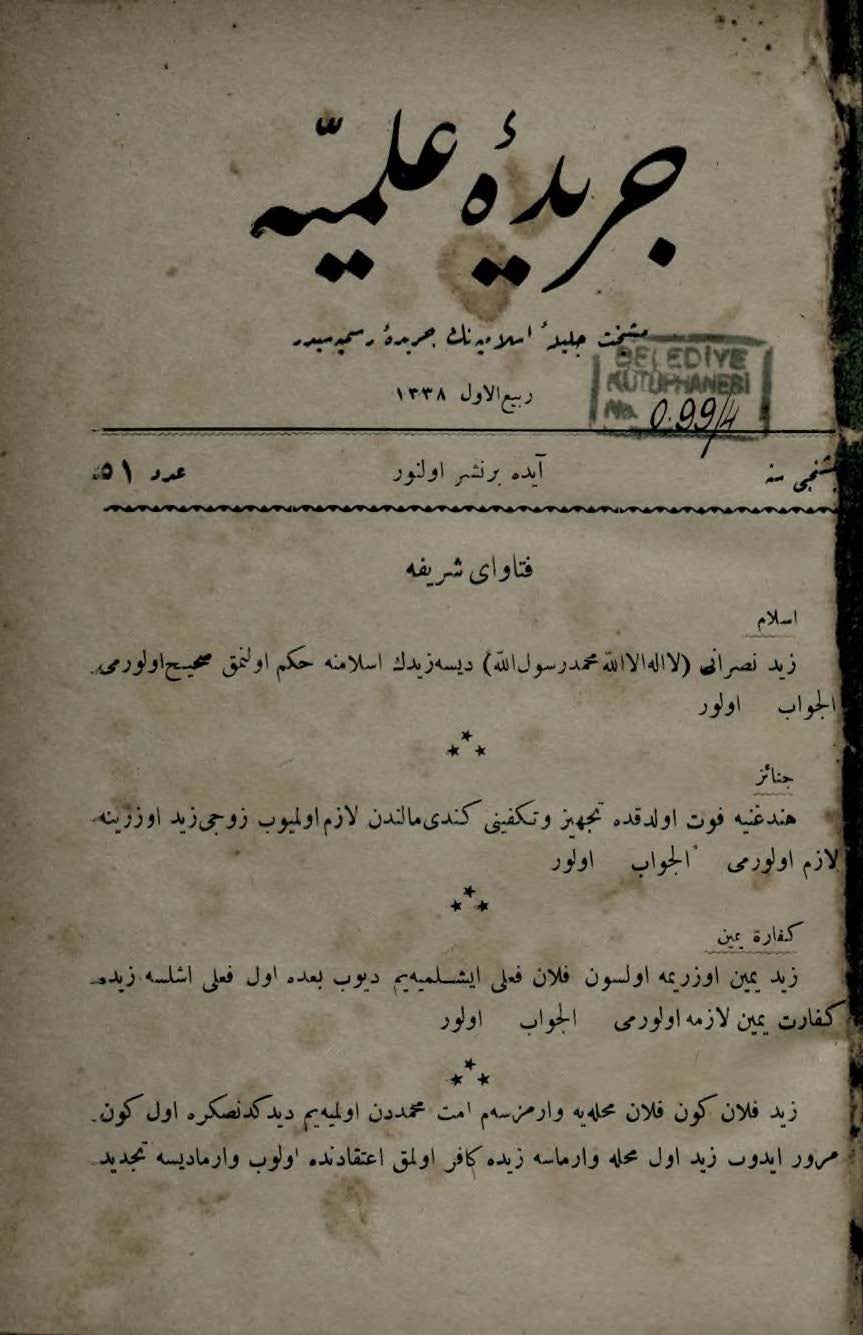 جريدۀ علميّه
مشيخت جليلۀ اسلاميه نك جريدۀ رسميه سيدر
BELEDİYE
KÜTÜPHANESİ
No. 0.99/4
ربيع الاول ١٣٣٨
بشنجى سنه
آيده برنشر اولنور
عدد ٥١
فتاواى شريفه
اسلام
زيد نصرانى (لااله الاالله محمدرسول الله) ديسه زيدك اسلامنه حكم اولنمق صحيح اولورمى
الجواب اولور
جنائز
هندغنيه فوت اولدقده تجهيز وتكفينى كندى مالندن لازم اولميوب زوجى زيد اوزرينه
لازم اولورمى الجواب اولور
كفارة يمين
زيد يمين اوزريمه اولسون فلان فعلى ايشلميه يم ديوب بعده اول فعلى اشلسه زيده
كفارت يمين لازمه اولورمى الجواب اولور
زيد فلان كون فلان محله يه وارمزسه م امت محمددن اولميه يم ديدكدنصكره اول كون
مرور ايدوب زيد اول محله وارماسه زيده كافر اولمق اعتقادنده اولوب وارماديسه تجديد